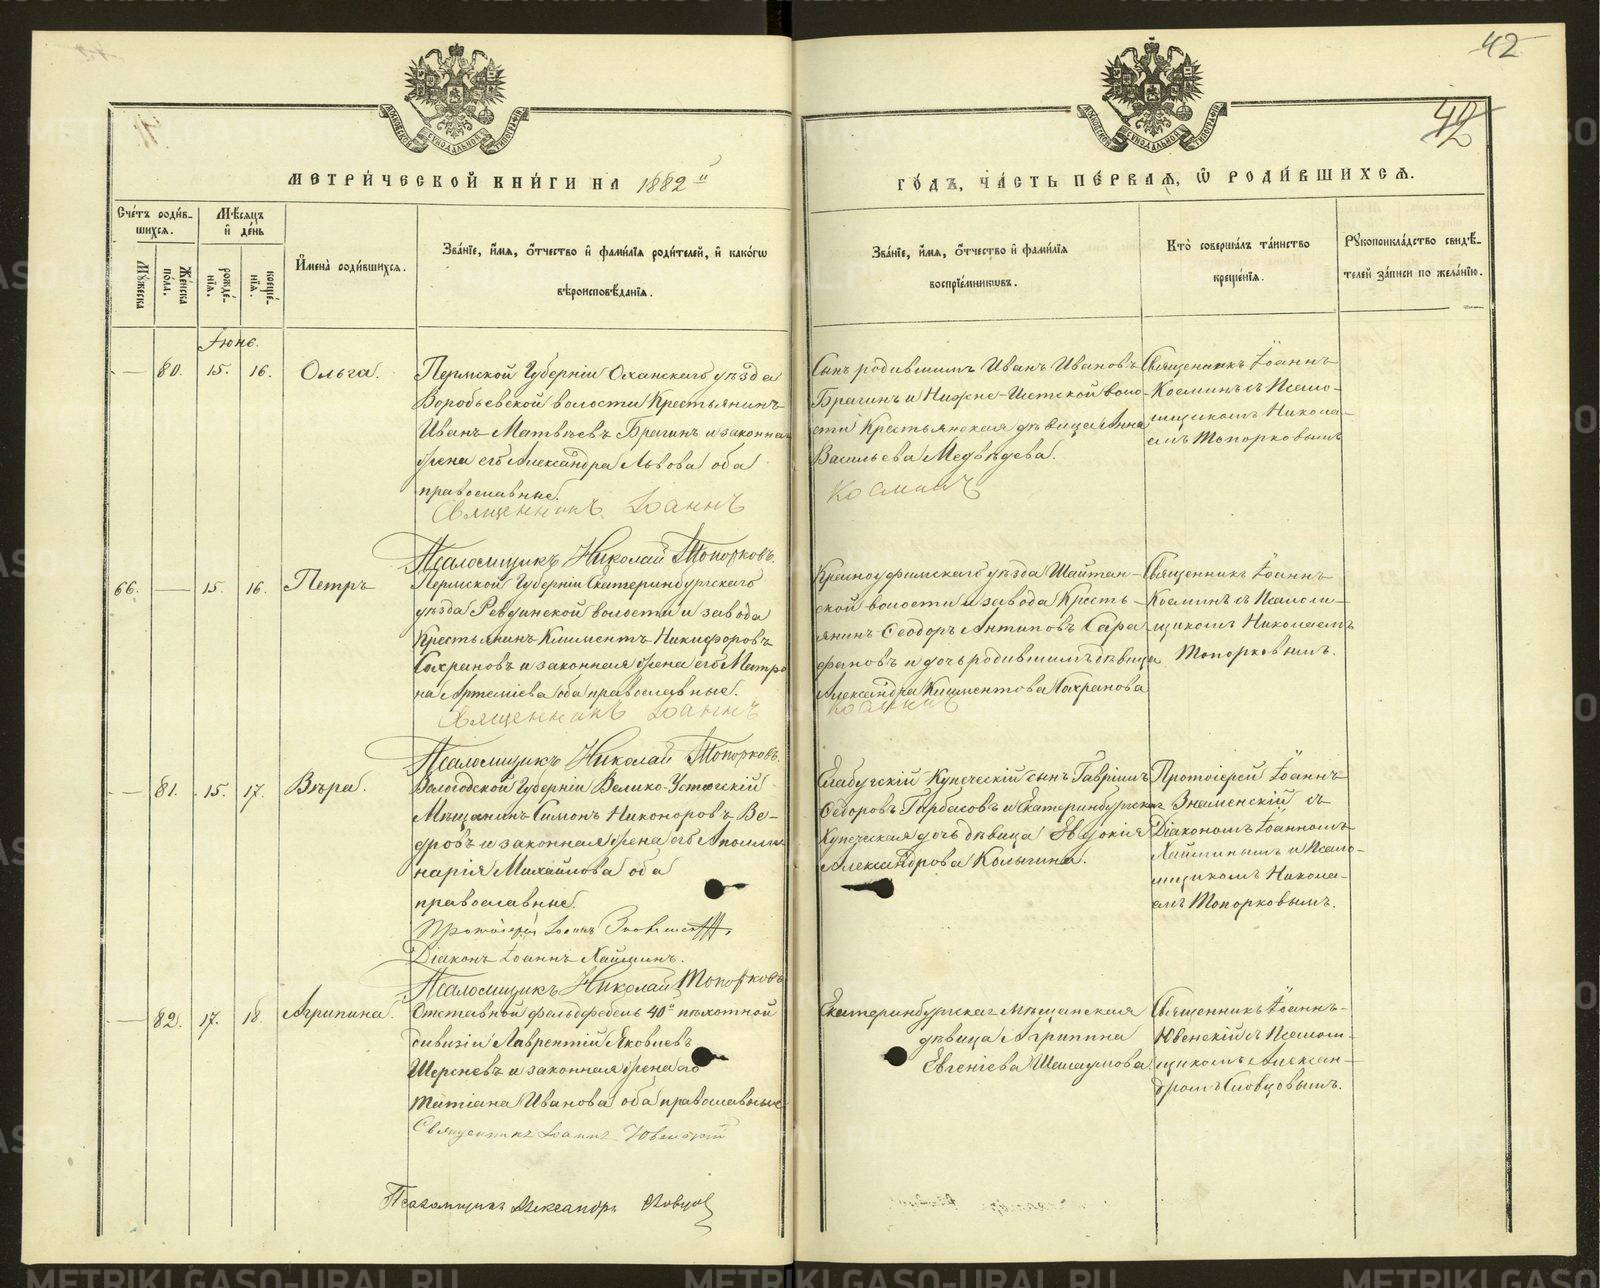 42
42
МЕТРИ́ЧЕСКОЙ КНИ́ГИ НА 1882й
ГО́ДЪ, ЧА́СТЬ ПЕ́РВАЯ, Ѡ РОДИ́ВШИХСЯ.
Сче́тъ роди́в-
шихся.
Мѣ́сяцъ
и҆ де́нь
Мꙋ́жеска
Же́нска
по́ла.
рожде́-
нїя.
креще́-
нїя.
И҆мена̀ роди́вшихся.
Зва́нїе, и҆́мя, ѻ҆́тчество и҆ фами́лїя роди́телей, и҆ како́гѡ
вѣроисповѣ́данїя.
Зва́нїе, и҆́мя, ѻ҆́тчество и҆ фами́лїя
воспрїе́мникѡвъ.
Кто̀ соверша́лъ та́инство
креще́нїя.
Рꙋкоприкла́дство свидѣ́-
телей за́писи по жела́нїю.
Іюнь.
— 80. 15. 16. Ольга.
Пермской Губерніи Оханскаго уѣзда
Воробьевской волости Крестьянинъ
Иванъ Матвѣевъ Брагинъ и законная
жена его Александра Львова оба
православные.
Священникъ Іоаннъ
Псаломщикъ Николай Топорковъ.
Сынъ родившимъ Иванъ Ивановъ
Брагинъ и Нижне-Исетской воло-
сти Крестьянская дѣвица Анна
Васильева Медвѣдева.
Косминъ
Священникъ Іоаннъ
Косминъ съ Псало-
мщикомъ Никола-
емъ Топорковымъ
66. — 15. 16. Петръ
Пермской Губерніи Екатеринбургскаго
уѣзда Ревдинской волости и завода
Крестьянинъ Климентъ Никифоровъ
Сахрановъ и законная жена его Матро
на Артеміева оба православные.
Священникъ Іоаннъ
Псаломщикъ Николай Топорковъ.
Красноуфимскаго уѣзда Шайтан-
ской волости и завода Кресть-
янинъ Ѳеодоръ Антиповъ Сара
фановъ и дочь родившимъ дѣвица
Александра Климентова Сахранова
Косминъ
Священникъ Іоаннъ
Косминъ съ Псалом-
щикомъ Николаемъ
Топорковымъ.
— 81. 15. 17. Вѣра.
Вологодской Губерніи Велико-Устюгскій
Мѣщанинъ Симонъ Никоноровъ Ве-
дровъ и законная жена его Аполли
нарія Михайлова оба
православные.
Протоіерей Іоаннъ Знаменскій
Діаконъ Іоаннъ Хаймин.
Псаломщикъ Николай Топорковъ
Елабугскій Купеческій сынъ Гавріилъ
Ѳедоровъ Гирбасовъ и Екатеринбургская
Купеческая дочь дѣвица Евдокія
Александрова Калыгина.
Протоіерей Іоаннъ
Знаменскій съ
Діакономъ Іоанномъ
Хайминымъ и Псало-
мщикомъ Никола-
емъ Топорковымъ.
— 82. 17. 18. Агрипина.
Отставной фельдфебель 40й пѣхотной
дивизіи Лаврентій Яковлевъ
Шерснѣвъ и законная жена его
Татіана Иванова оба православные
Священникъ Іоаннъ Ювенскій
Псаломщикъ Александръ Словцов
Екатеринбургская Мѣщанская
дѣвица Агрипина
Евгеніева Шалаумова.
Священникъ Іоаннъ-
Ювенскій съ Псалом-
щикомъ Алексан-
дромъ Словцовымъ.
METRIKI.GASO-URAL.RU